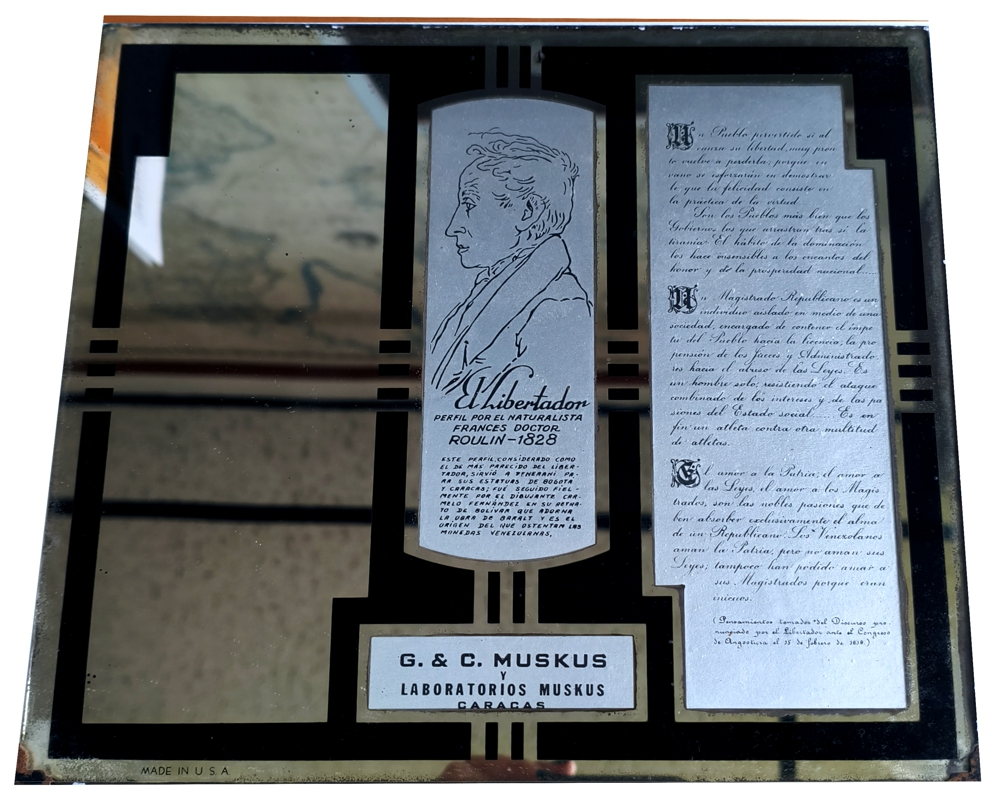 El Libertador
PERFIL POR EL NATURALISTA
FRANCES DOCTOR
ROULIN-1828
ESTE PERFIL, CONSIDERADO COMO
EL DE MAS PARECIDO DEL LIBER-
TADOR, SIRVIÓ A TENERANI PA-
RA SUS ESTATUAS DE BOGOTA
Y CARACAS; FUÉ SEGUIDO FIEL-
MENTE POR EL DIBUJANTE CAR-
MELO FERNÁNDEZ EN SU RETRA-
TO DE BOLÍVAR QUE ADORNA
LA OBRA DE BARALT Y ES EL
ORIGEN DEL QUE OSTENTAN LAS
MONEDAS VENEZOLANAS,
Un Pueblo pervertido si al
canza su libertad, muy pron
to vuelve a perderla; porque en
vano se esforzarán en demostrar
le que la felicidad consiste en
la práctica de la virtud.
Son los Pueblos más bien que los
Gobiernos los que arrastran tras sí la
tiranía. El hábito de la dominación
los hace insensibles a los encantos del
honor y de la prosperidad nacional....
Un Magistrado Republicano es un
individuo aislado en medio de una
sociedad, encargado de contener el ímpe
tu del Pueblo hacia la licencia, la pro
pensión de los Jueces y Administrado
res hacia el abuso de las Leyes. Es
un hombre solo, resistiendo el ataque
combinado de los intereses y de las pa
siones del Estado social. Es en
fin un atleta contra otra multitud
de atletas.
El amor a la Patria, el amor a
las Leyes, el amor a los Magis
trados, son las nobles pasiones que de
ben absorber exclusivamente el alma
de un Republicano. Los Venezolanos
aman la Patria, pero no aman sus
Leyes, tampoco han podido amar a
sus Magistrados porque eran
inicuos.
(Pensamientos tomados del Discurso pro
nunciado por el Libertador ante el Congreso
de Angostura el 15 de febrero de 1819.)
G. & C. MUSKUS
Y
LABORATORIOS MUSKUS
CARACAS
MADE IN U S A